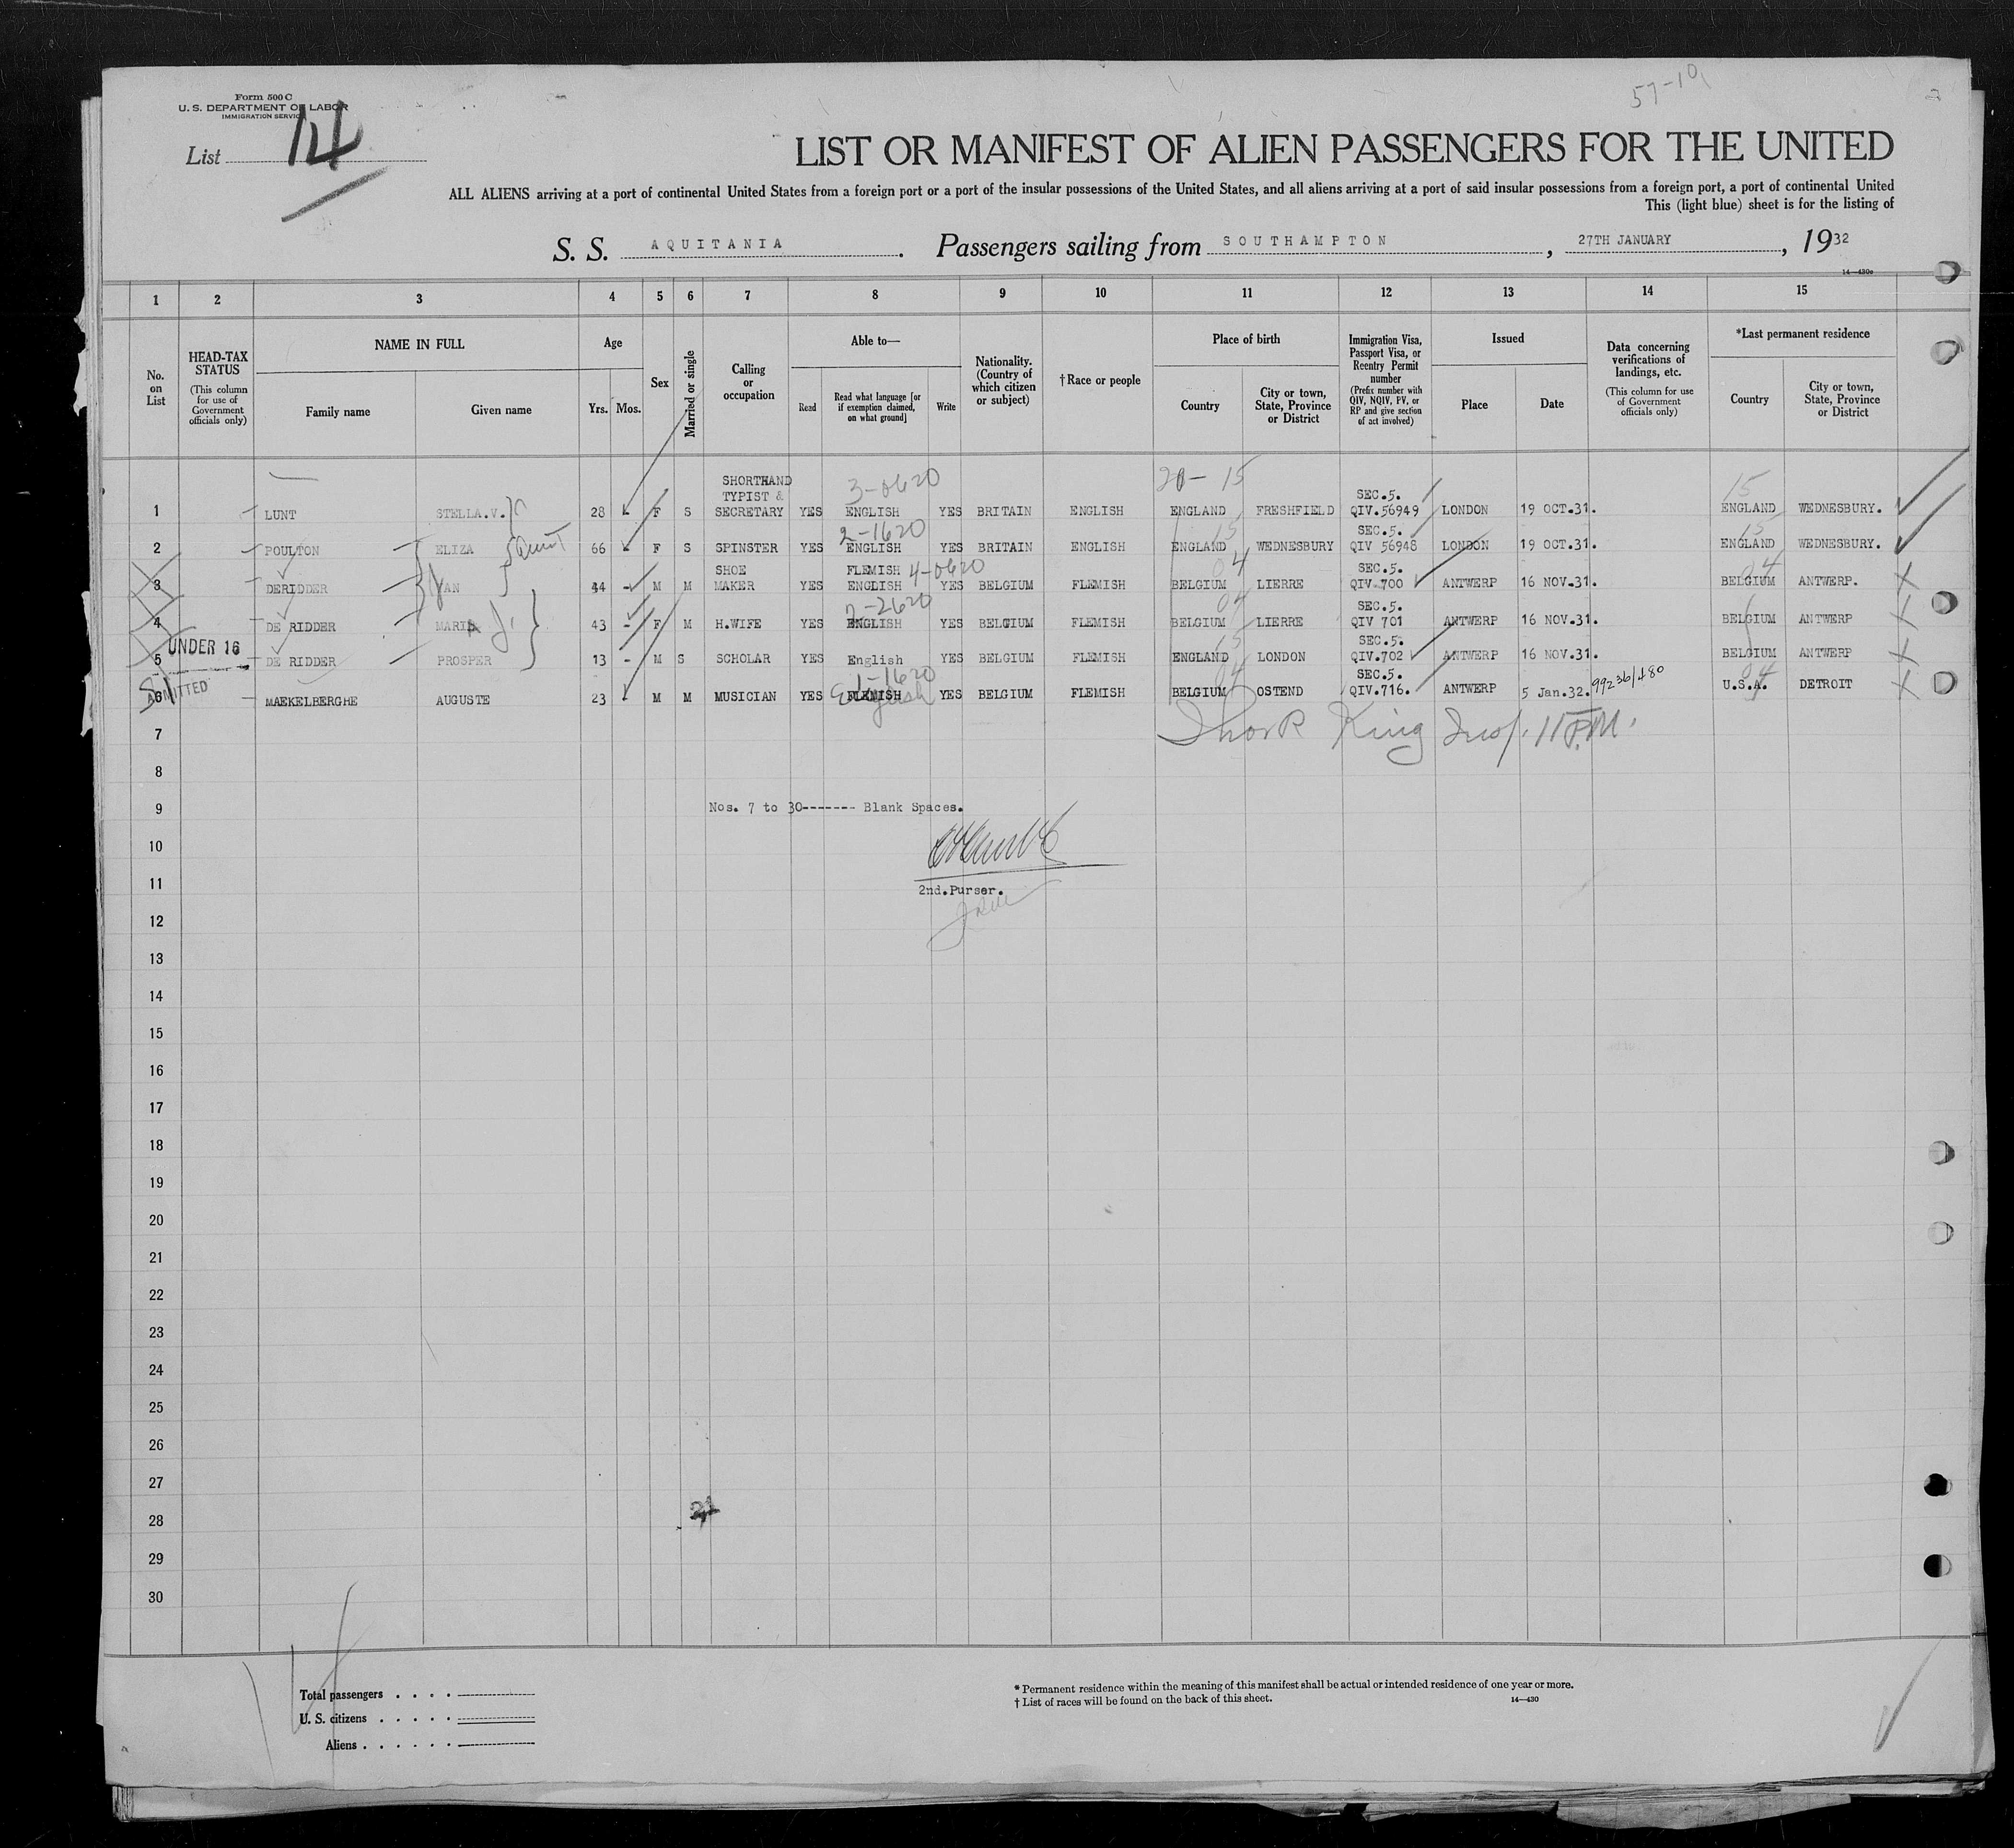 57-10
Form 500 C
U. S. DEPARTMENT OF LABOR
IMMIGRATION SERVICE
List 14
LIST OR MANIFEST OF ALIEN PASSENGERS FOR THE UNITED
ALL ALIENS arriving at a port of continental United States from a foreign port or a port of the insular possessions of the United States, and all aliens arriving at a port of said insular possessions from a foreign port, a port of continental United
This (light blue) sheet is for the listing of
S. S. AQUITANIA. Passengers sailing from SOUTHAMPTON, 27TH JANUARY, 1932
14—430c
1 2 3 4 5 6 7 8 9 10 11 12 13 14 15
No. on List
HEAD-TAX STATUS (This column for use of Government officials only)
NAME IN FULL
Family name Given name
Age
Yrs. Mos.
Sex
Married or single
Calling or occupation
Able to—
Read
Read what language [or if exemption claimed, on what ground]
Write
Nationality. (Country of which citizen or subject)
†Race or people
Place of birth
Country
City or town, State, Province or District
Immigration Visa, Passport Visa, or Reentry Permit number (Prefix number with QIV, NQIV, PV, or RP and give section of act involved)
Issued
Place Date
Data concerning verifications of landings, etc. (This column for use of Government officials only)
*Last permanent residence
Country
City or town, State, Province or District
3-0620 20-15 15
1 LUNT STELLA.V. 28 F S SHORTHAND TYPIST & SECRETARY YES ENGLISH YES BRITAIN ENGLISH ENGLAND FRESHFIELD SEC.5. QIV.56949 LONDON 19 OCT.31. ENGLAND WEDNESBURY.
2-1620 15 15
2 POULTON ELIZA Aunt 66 F S SPINSTER YES ENGLISH YES BRITAIN ENGLISH ENGLAND WEDNESBURY SEC.5. QIV 56948 LONDON 19 OCT.31. ENGLAND WEDNESBURY.
4-0620 04 04
3 DERIDDER JAN 44 - M M SHOE MAKER YES FLEMISH ENGLISH YES BELGIUM FLEMISH BELGIUM LIERRE SEC.5. QIV.700 ANTWERP 16 NOV.31. BELGIUM ANTWERP.
2-2620 04
4 DE RIDDER MARIA J. 43 - F M H.WIFE YES ENGLISH YES BELGIUM FLEMISH BELGIUM LIERRE SEC.5. QIV 701 ANTWERP 16 NOV.31. BELGIUM ANTWERP
UNDER 16 15
5 DE RIDDER PROSPER 13 - M S SCHOLAR YES English YES BELGIUM FLEMISH ENGLAND LONDON SEC.5. QIV.702 ANTWERP 16 NOV.31. BELGIUM ANTWERP
ADMITTED 1-1620 04 04
6 MAEKELBERGHE AUGUSTE 23 M M MUSICIAN YES FLEMISH English YES BELGIUM FLEMISH BELGIUM OSTEND SEC.5. QIV.716. ANTWERP 5 Jan.32. 99236/480 U.S.A. DETROIT
7 King Insp. 11 P.M.
8
9 Nos. 7 to 30------- Blank Spaces.
10
11 2nd.Purser.
12
13
14
15
16
17
18
19
20
21
22
23
24
25
26
27
28 21
29
30
Total passengers . . . .
U. S. citizens . . . . .
Aliens . . . . . .
* Permanent residence within the meaning of this manifest shall be actual or intended residence of one year or more.
† List of races will be found on the back of this sheet. 14—430